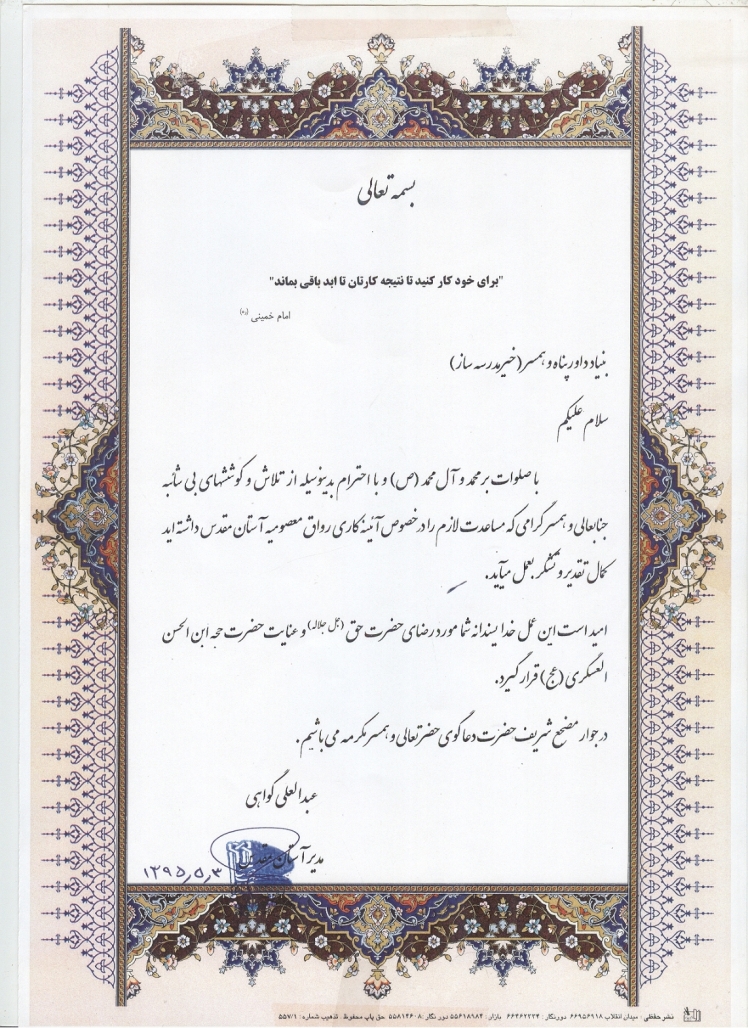 بسمه تعالی
"برای خود کار کنید تا نتیجه کارتان تا ابد باقی بماند"
امام خمینی (ره)
بنیاد داورپناه و همسر (خیر مدرسه ساز)
سلام علیکم
با صلوات بر محمد و آل محمد (ص) و با احترام بدینوسیله از تلاش و کوششهای بی شائبه
جنابعالی و همسر گرامی که مساعدت لازم را در خصوص آئینه کاری رواق معصومیه آستان مقدس داشته اید
کمال تقدیر و تشکر بعمل میآید.
امید است این عمل خدا پسندانه شما مورد رضای حضرت حق (جل جلاله) و عنایت حضرت حجه ابن الحسن
العسگری (عج) قرار گیرد.
در جوار مضجع شریف حضرت دعاگوی حضرتعالی و همسر مکرمه می باشیم.
عبدالعلی گواهی
مدیر آستان مقدس
۱۳۹۵٫۵٫۳
نشر حفظی : میدان انقلاب ۶۶۹۵۶۹۱۸ دورنگار : ۶۶۴۶۲۲۳۴ بازار : ۵۵۶۱۸۹۸۴ دور نگار : ۵۵۸۱۴۶۰۸ حق چاپ محفوظ تذهیب شماره : ۵۵۷/۱